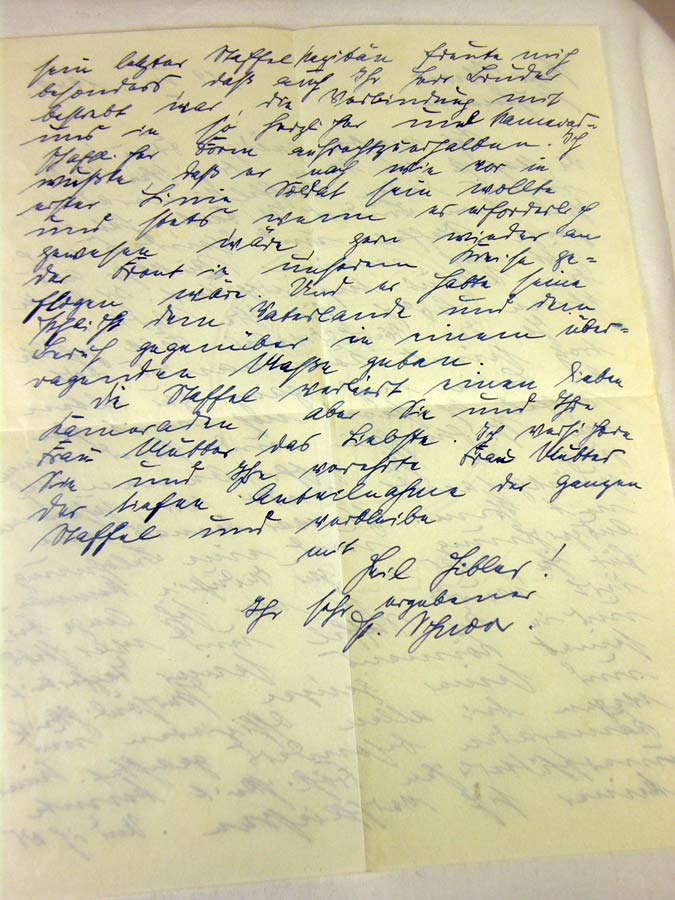 sein letzter Staffelkapitän freute mich
besonders daß auch Ihr Herr Bruder
bestrebt war, die Verbindung mit
uns in so herzlicher und kamerad-
schaftlicher Form aufrechtzuerhalten. Ich
wußte daß er nach wie vor in
erster Linie Soldat sein wollte
und stets wenn es erforderlich
gewesen wäre, gern wieder an
der Front in unserem Kreise ge-
flogen wäre. Und er hatte seine
Pflicht dem Vaterlande und dem
Beruf gegenüber in einem über-
ragenden Maße getan.
Die Staffel verliert einen lieben
Kameraden, aber Sie und Ihre
Frau Mutter das Liebste. Ich versichere
Sie und Ihre verehrte Frau Mutter
der tiefen Anteilnahme der ganzen
Staffel und verbleibe
mit
Heil Hitler!
Ihr sehr ergebener